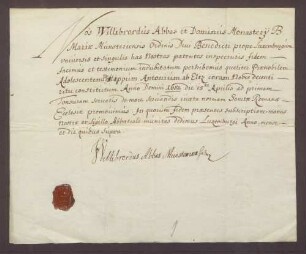 Nos Willibrordus Abbas et Dominus Monasterij B.
Mariæ Munsteriensis Ordinis Divi Benedicti prope Luxemburgum
universis et singulis has nostras patentes inspecturis fidem
facimus et testimonium indubitatum perhibemus
Adolescentem ab Eltz coram Nobis
constitutum Anno Domini die Aprilis ad primam
Tonsuram de more Sanctæ Romanæ
Ecclesiæ promovimus. In quorum fidem præsentes subscriptione manus
nostræ et Sigillo Abbatiali munitas dedimus Luxemburgi Anno, mense
et die quibus supra.
Willibrordus Abbas Munsteriensis